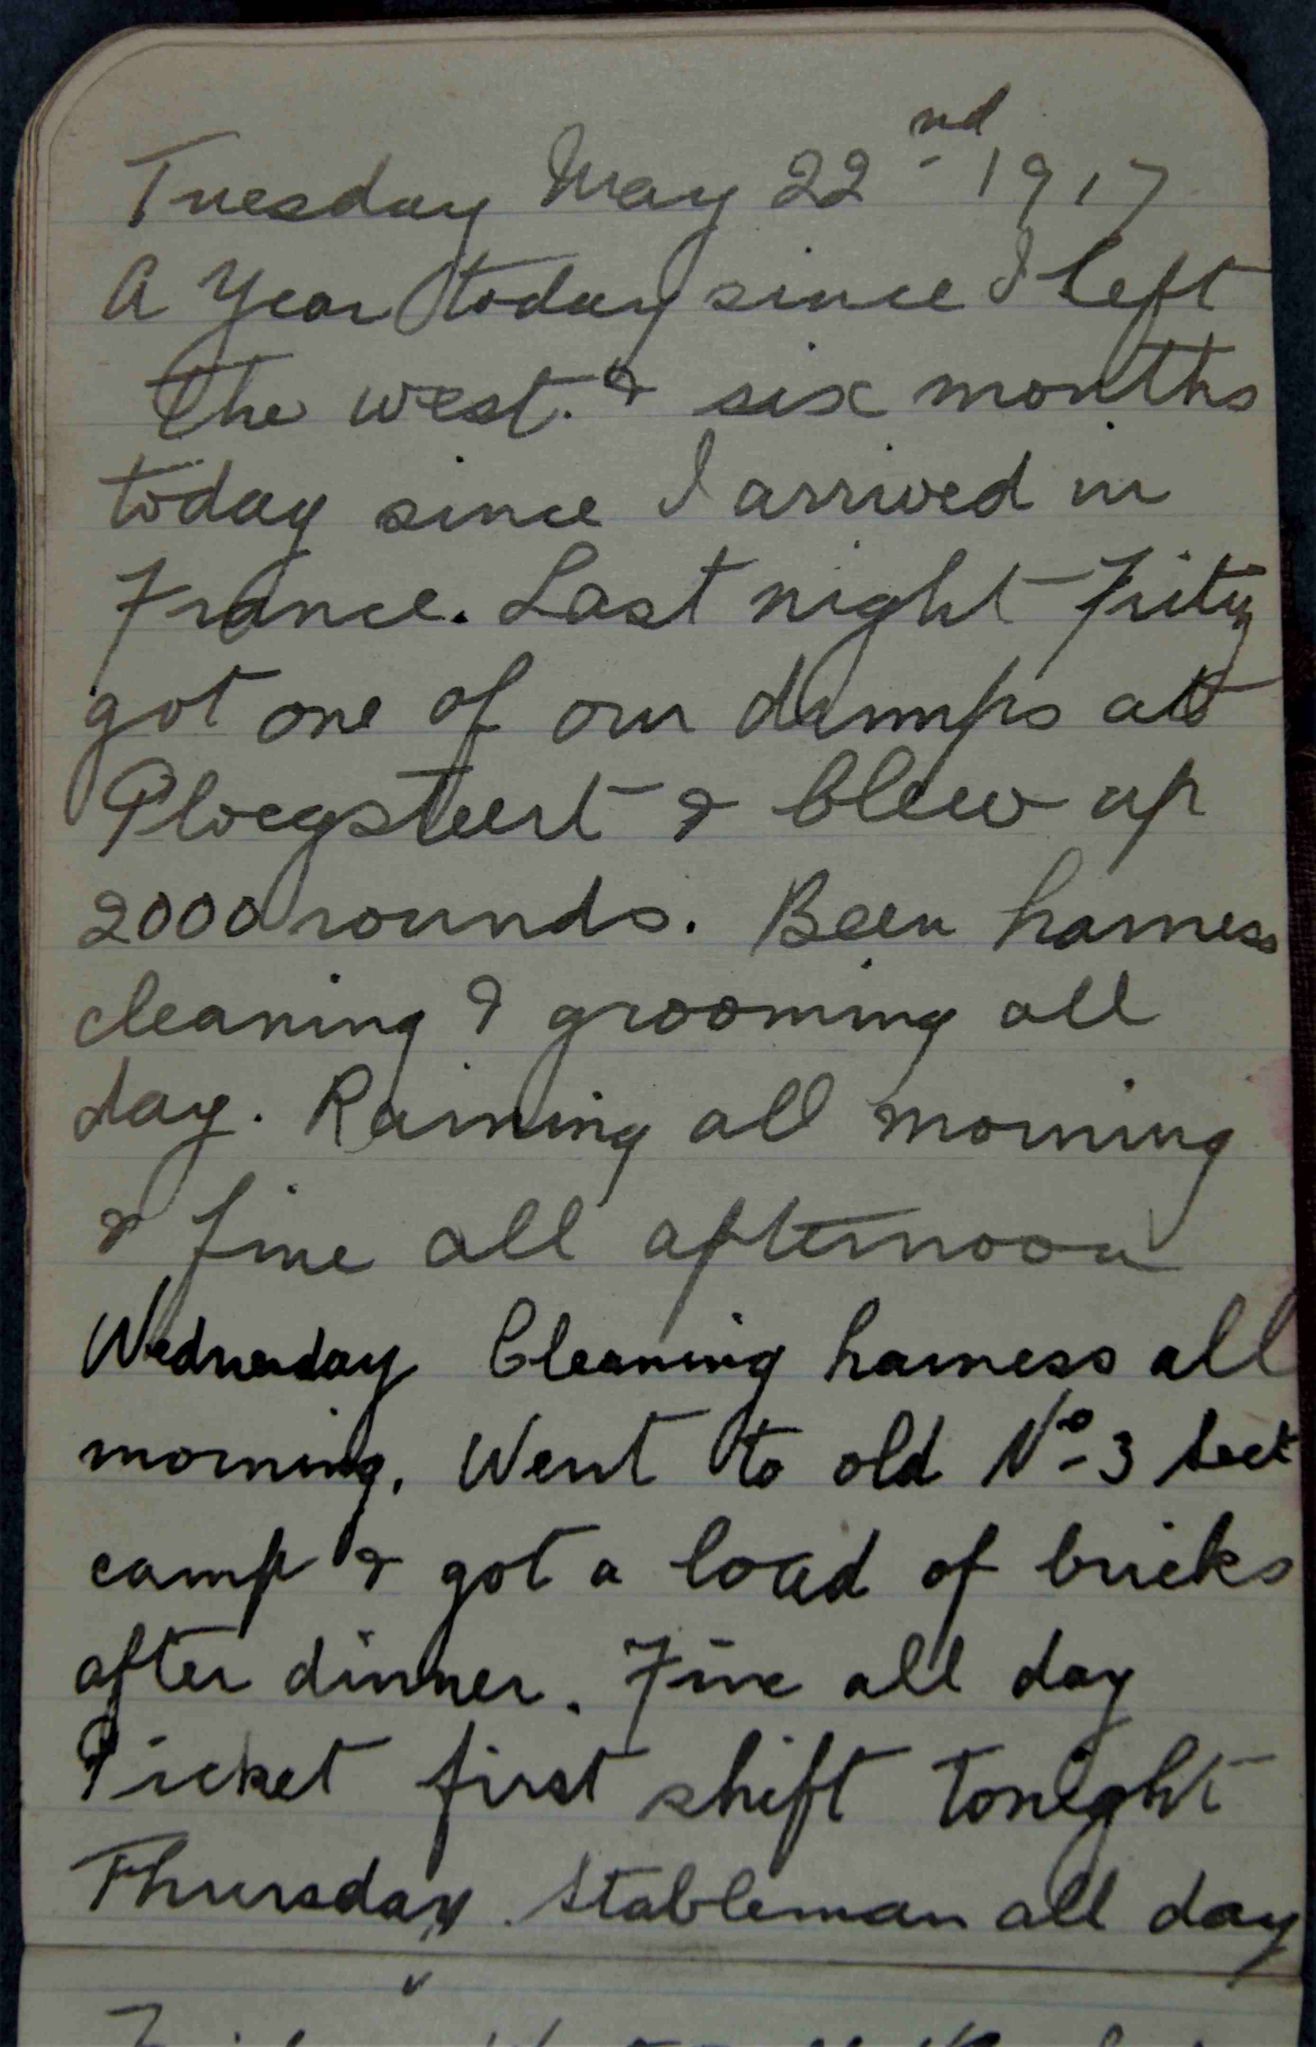 Tuesday May 22nd 1917
A Year today since I left
the west. & six months
today since I arrived in
France. Last night Fritz
got one of our dumps at
Ploegsteert & blew up
2000 rounds. Been harness
cleaning & grooming all
day. Raining all morning
& fine all afternoon
Wednesday Cleaning harness all
morning. Went to old No 3 Sect
camp & got a load of bricks
after dinner. Fine all day
Picket first shift tonight
Thursday. Stableman all day